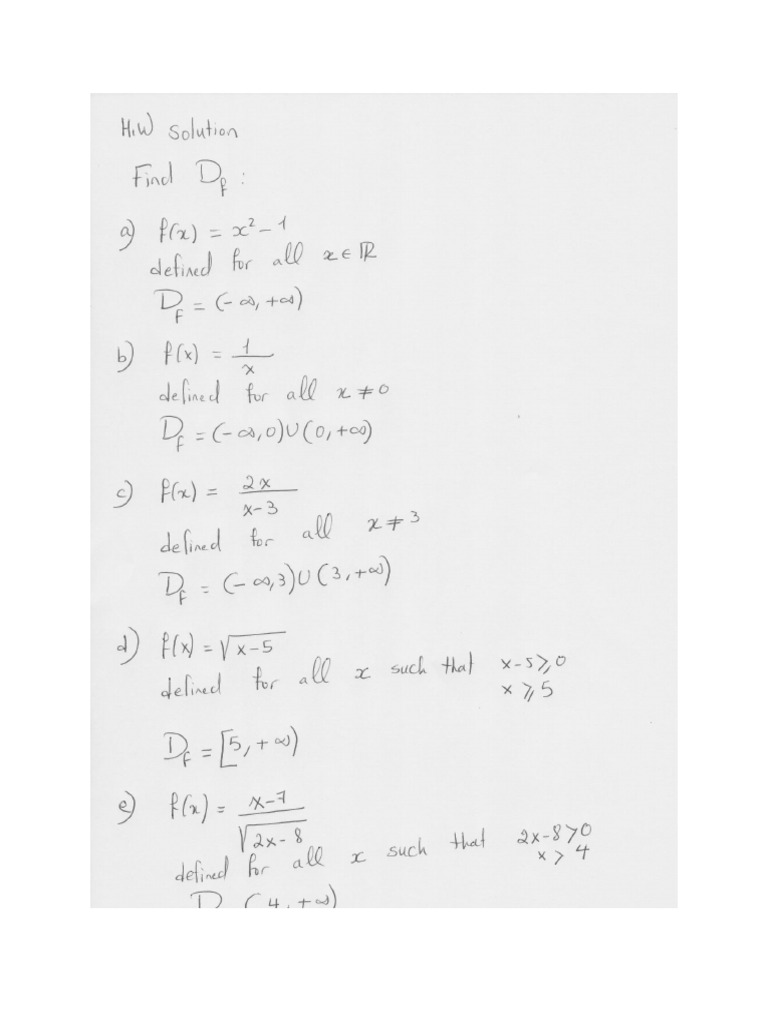 H.W Solution
Find D_f :
a) f(x) = x² - 1
defined for all x ∈ ℝ
D_f = (-∞, +∞)
b) f(x) = 1/x
defined for all x ≠ 0
D_f = (-∞, 0) ∪ (0, +∞)
c) f(x) = 2x/(x-3)
defined for all x ≠ 3
D_f = (-∞, 3) ∪ (3, +∞)
d) f(x) = √(x-5)
defined for all x such that x-5 ⩾ 0
x ⩾ 5
D_f = [5, +∞)
e) f(x) = (x-7)/√(2x-8)
defined for all x such that 2x-8 > 0
x > 4
D (4, +∞)